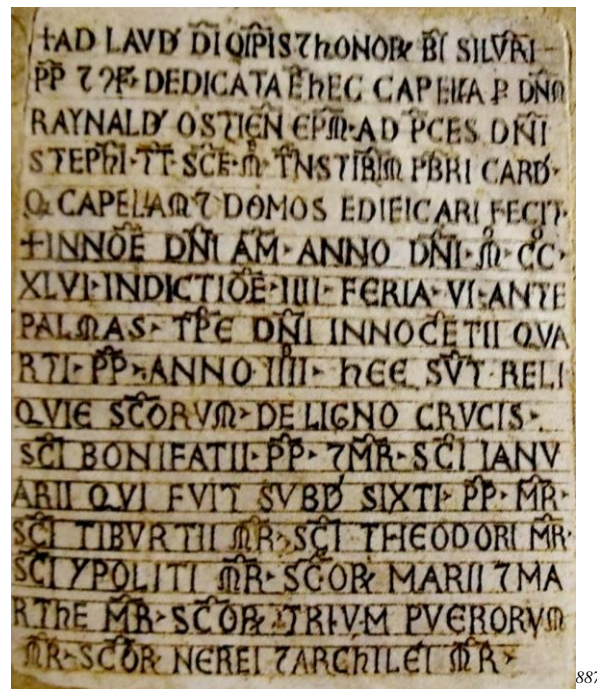 +AD LAVD̄ D̄I OĪPIS ⁊ hONOꝶ B̄I SILVR̄I–
P̄P̄ ⁊ ꝯF̄· DEDICATA Ē hEC CAPELLA P̱ DN̄M
RAYNALD̄ OSTIEN̄ EP̄M· AD P̄CES DN̄I
STEPh̄I· T̄T̄· SC̄E· M̊· T̄NSTIB̄IM P̄BRI CARD̄·
Q̱ CAPELLAM ⁊ DOMOS EDIFICARI FECIT·
+INNOĒ DN̄I AM̄· ANNO DN̄I· M̊· C̊C̊·
XLVI· INDICTIOĒ· IIII· FERIA· VI· ANTE
PALMAS· TP̄E DN̄I INNOCĒTII QVA
RTI· P̄P̄· ANNO IIII̊· hEE SV̄T· RELI
QVIE SC̄ORVM· DE LIGNO CRVCIS·
SC̄I BONIFATII· P̄P̄· ⁊ M̄R̄· SC̄I IANV
ARII QVI FVIT SVBD̄ SIXTI· P̄P̄· M̄R̄·
SC̄I TIBVRTII M̄R̄· SC̄I THEODORI M̄R̄·
SC̄I YPOLITI M̄R̄· SC̄Oꝶ MARII ⁊ MA
RThE M̄R̄· SC̄Oꝶ· TRIVM PVERORVM
M̄R̄· SC̄Oꝶ NEREI ⁊ ARChILEI M̄R̄·
887